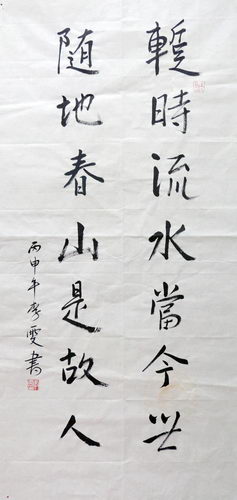 暫時流水當今世
隨地春山是故人
丙申年雯書